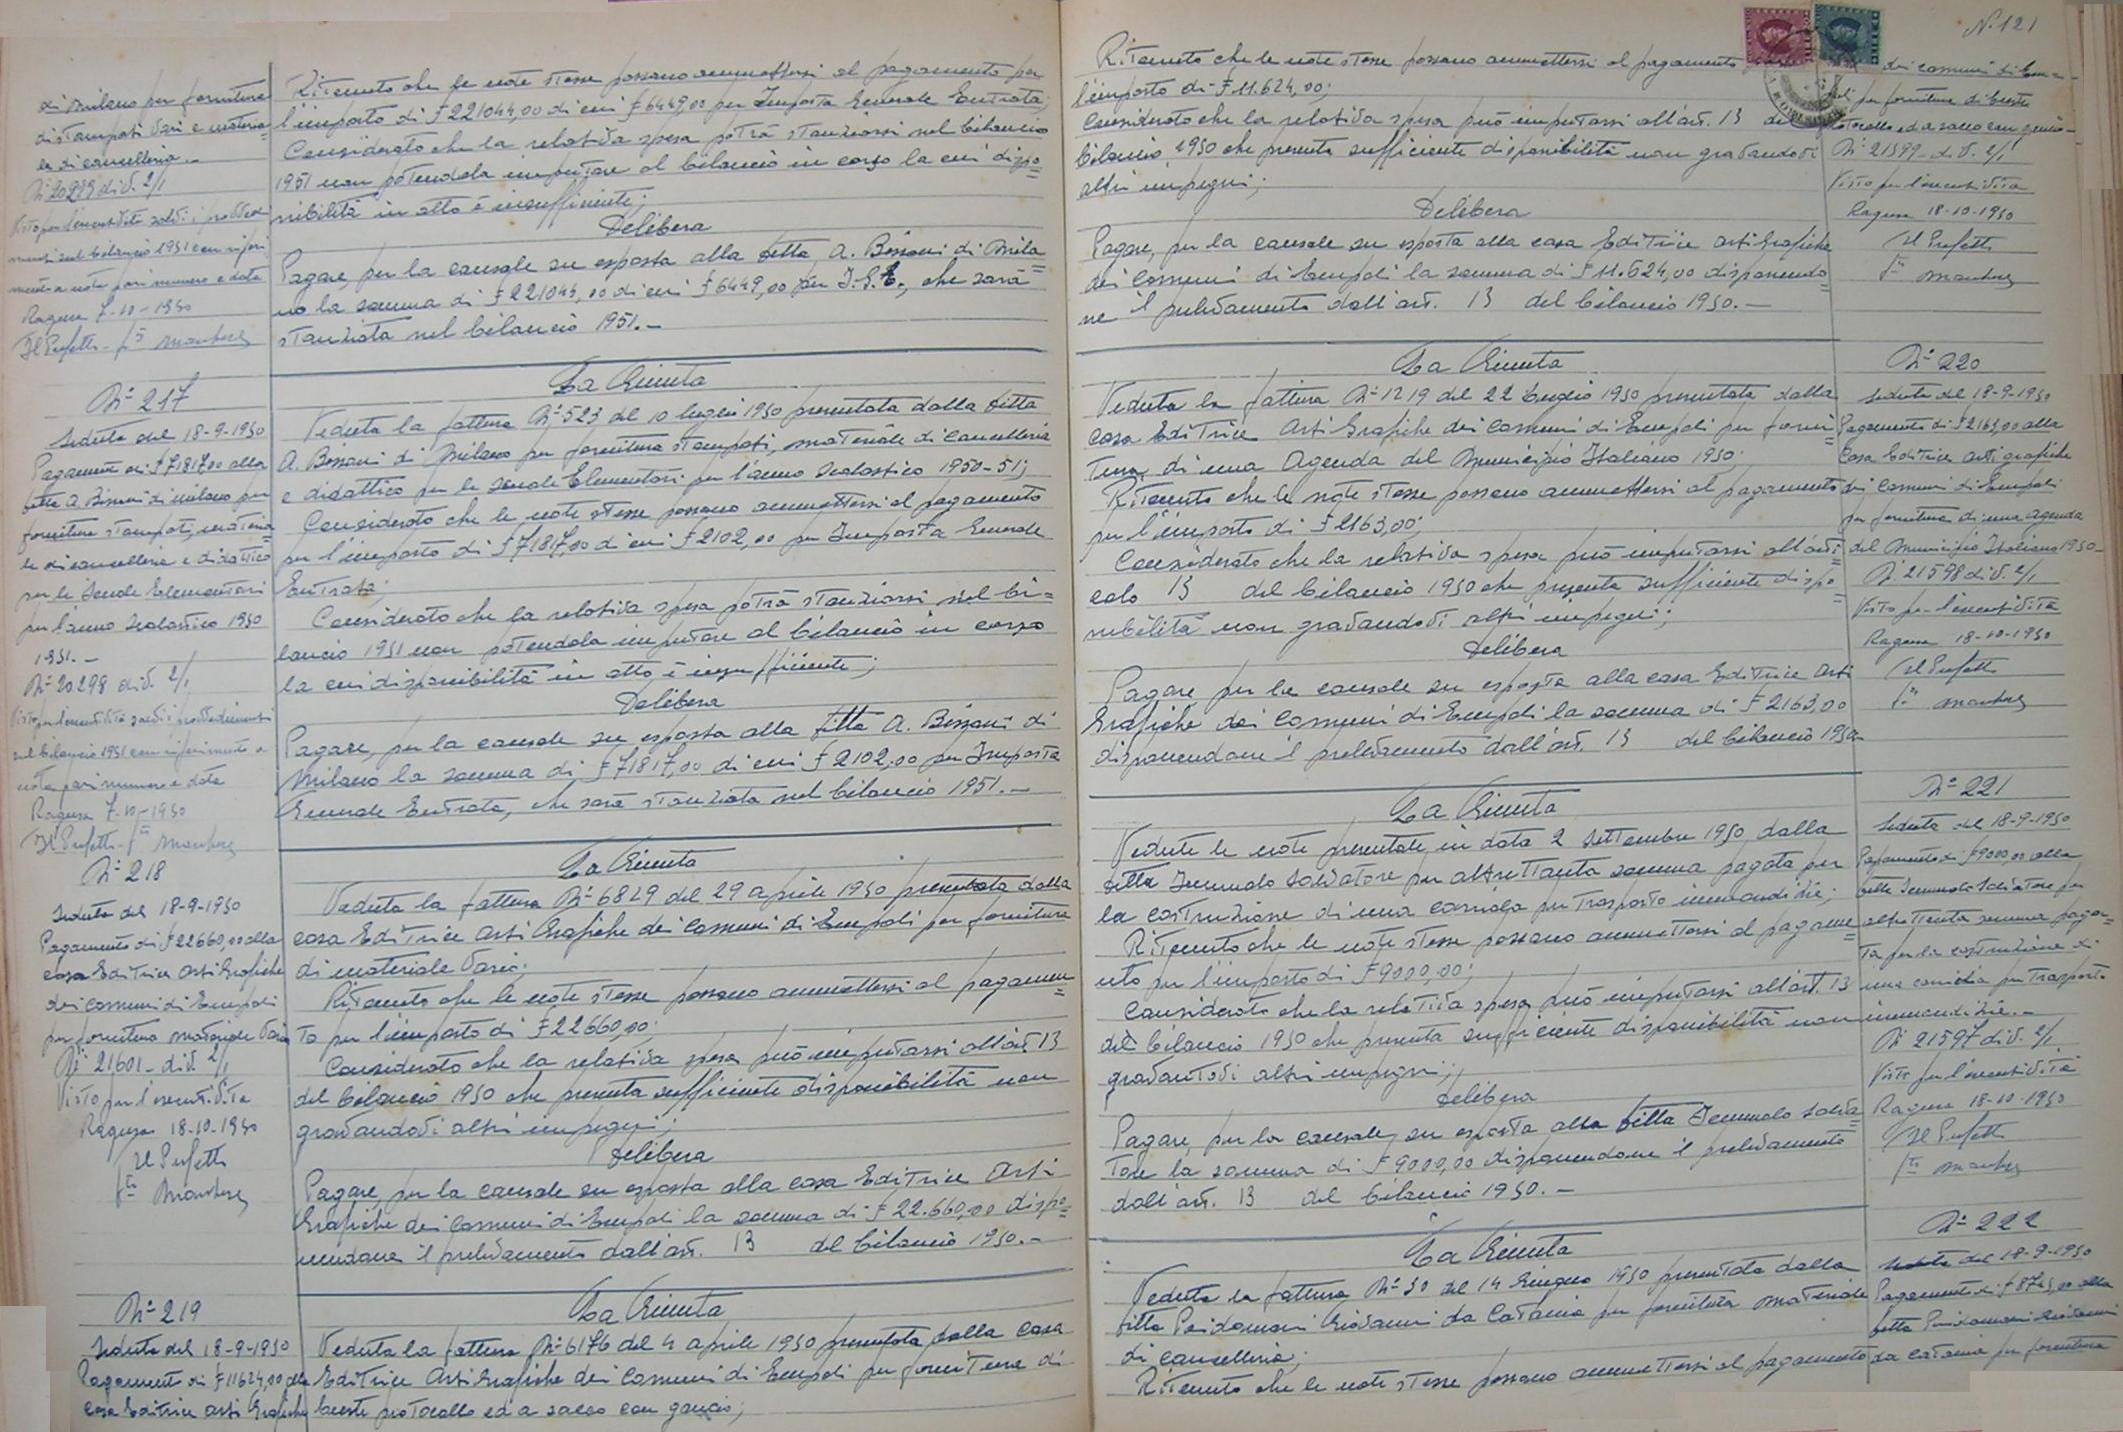 di Milano per forniture
di stampati vari e materia=
le di cancelleria.-
N° 20299 div. 2/1
Visto per l'esecutività salvi i provvedi
menti sul bilancio 1951 con riferi
mento a nota pari numero e data
Ragusa 7-10-1950
Il Prefetto - f.to
Ritenuto che le note stesse possano ammettersi al pagamento per
l'importo di £ 221044,00 di cui £ 6449,00 per Imposta Generale Entrata;
Considerato che la relativa spesa potrà stanziarsi nel bilancio
1951 non potendola imputare al bilancio in corso la cui dispo=
nibilità in atto è insufficiente;
Delibera
Pagare, per la causale su esposta alla ditta A. Bissoni di Mila=
no la somma di £ 221044,00 di cui £ 6449,00 per I.G.E., che sarà
stanziata nel bilancio 1951.-
N° 217
Seduta del 18-9-1950
Pagamento di £ 71817,00 alla
ditta A. Bissoni di Milano per
fornitura stampati, materia
le di cancelleria e didattico
per le Scuole Elementari
per l'anno scolastico 1950
1951.-
N° 20298 div. 2/1
Visto per l'esecutività salvi i provvedimenti
sul bilancio 1951 con riferimento a
nota pari numero e data
Ragusa 7-10-1950
Il Prefetto - f.to
La Giunta
Veduta la fattura N° 523 del 10 luglio 1950 presentata dalla ditta
A. Bissoni di Milano per fornitura stampati, materiale di cancelleria
e didattico per le scuole Elementari per l'anno scolastico 1950-51;
Considerato che le note stesse possano ammettersi al pagamento
per l'importo di £ 71817,00 di cui £ 2102,00 per Imposta Generale
Entrata;
Considerato che la relativa spesa potrà stanziarsi nel bi=
lancio 1951 non potendola imputare al bilancio in corso
la cui disponibilità in atto è insufficiente;
Delibera
Pagare, per la causale su esposta alla ditta A. Bissoni di
Milano la somma di £ 71817,00 di cui £ 2102,00 per Imposta
Generale Entrata, che sarà stanziata nel bilancio 1951.-
N° 218
Seduta del 18-9-1950
Pagamento di £ 22660,00 alla
casa Editrice Arti Grafiche
dei comuni di Empoli
per fornitura materiale vario
N° 21601 - div. 2/1
Visto per l'esecutività
Ragusa 18-10-1950
Il Prefetto
f.to
La Giunta
Veduta la fattura N° 6829 del 29 aprile 1950 presentata dalla
casa Editrice Arti Grafiche dei Comuni di Empoli per fornitura
di materiale vario;
Ritenuto che le note stesse possano ammettersi al pagamen=
to per l'importo di £ 22660,00;
Considerato che la relativa spesa può imputarsi all'art. 13
del bilancio 1950 che presenta sufficiente disponibilità non
gravandovi altri impegni;
Delibera
Pagare, per la causale su esposta alla casa Editrice Arti
Grafiche dei Comuni di Empoli la somma di £ 22.660,00 dispo=
nendone il prelevamento dall'art. 13 del bilancio 1950.-
N° 219
Seduta del 18-9-1950
Pagamento di £ 11624,00 alla
casa Editrice Arti Grafiche
La Giunta
Veduta la fattura N° 6176 del 4 aprile 1950 presentata dalla casa
Editrice Arti Grafiche dei Comuni di Empoli per fornitura di
buste protocollo ed a sacco con gancio;
N. 121
Ritenuto che le note stesse possano ammettersi al pagamento per
l'importo di £ 11.624,00;
Considerato che la relativa spesa può imputarsi all'art. 13 del
bilancio 1950 che presenta sufficiente disponibilità non gravandovi
altri impegni;
Delibera
Pagare, per la causale su esposta alla casa Editrice Arti Grafiche
dei Comuni di Empoli la somma di £ 11.624,00 disponendo=
ne il prelevamento dall'art. 13 del bilancio 1950.-
dei comuni di Empo-
li per forniture di buste
protocollo ed a sacco con gancio-
N° 21599 - div. 2/1
Visto per l'esecutività
Ragusa 18-10-1950
Il Prefetto
f.to
La Giunta
Veduta la fattura N° 1219 del 22 Luglio 1950 presentata dalla
casa Editrice Arti Grafiche dei Comuni di Empoli per forni=
tura di una Agenda del Municipio Italiano 1950;
Ritenuto che le note stesse possano ammettersi al pagamento
per l'importo di £ 2163,00;
Considerato che la relativa spesa può imputarsi all'arti=
colo 13 del bilancio 1950 che presenta sufficiente dispo=
nibilità non gravandovi altri impegni;
Delibera
Pagare per la causale su esposta alla casa Editrice Arti
Grafiche dei Comuni di Empoli la somma di £ 2163,00
disponendone il prelevamento dall'art. 13 del bilancio 1950-
N° 220
Seduta del 18-9-1950
Pagamento di £ 2163,00 alla
Casa Editrice Arti grafiche
dei comuni di Empoli
per fornitura di una agenda
del Municipio Italiano 1950-
N° 21598 div. 2/1
Visto per l'esecutività
Ragusa 18-10-1950
Il Prefetto
f.to
La Giunta
Vedute le note presentate in data 2 Settembre 1950 dalla
ditta Salvatore per altrettanta somma pagata per
la costruzione di una carriola per trasporto immondizie;
Ritenuto che le note stesse possano ammettersi al pagame=
nto per l'importo di £ 9000,00;
Considerato che la relativa spesa può imputarsi all'art. 13
del bilancio 1950 che presenta sufficiente disponibilità non
gravandovi altri impegni;
Delibera
Pagare, per la causale su esposta alla ditta Salva=
tore la somma di £ 9000,00 disponendone il prelevamento
dall'art. 13 del bilancio 1950.-
N° 221
Seduta del 18-9-1950
Pagamento di £ 9000,00 alla
ditta Salvatore per
altrettanta somma paga=
ta per la costruzione di
una carriola per trasporto
immondizie.-
N° 21597 div. 2/1
Visto per l'esecutività
Ragusa 18-10-1950
Il Prefetto
f.to
La Giunta
Veduta la fattura N° 30 del 14 Giugno 1950 presentata dalla
ditta Giovanni da Catania per fornitura materiale
di cancelleria;
Ritenuto che le note stesse possano ammettersi al pagamento
N° 222
Seduta del 18-9-1950
Pagamento di alla
ditta Giovanni
da Catania per fornitura